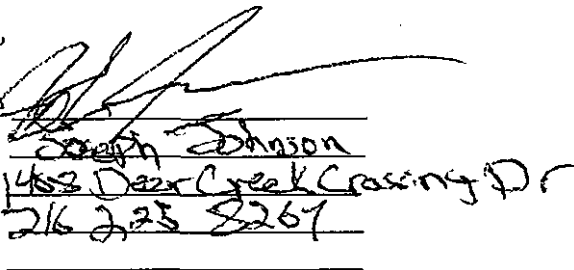 Joseph Johnson
1408 Deer Creek Crossing Dr
216 225 8267